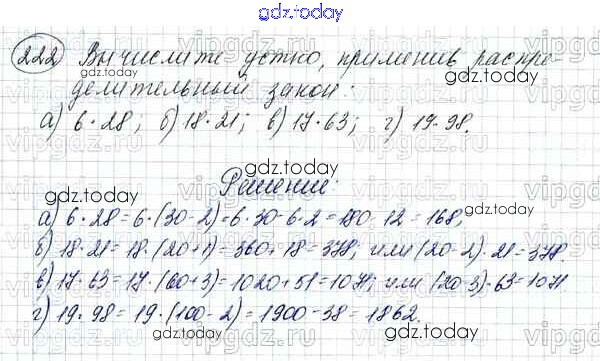 gdz.today
222 Вычислите устно, применив распре-
делительный закон:
а) 6·28; б) 18·21; в) 17·63; г) 19·98.
gdz.today
Решение:
а) 6·28=6·(30-2)=6·30-6·2=180-12=168;
б) 18·21=18·(20+1)=360+18=378; или (20-2)·21=378.
в) 17·63=17·(60+3)=1020+51=1071; или (20-3)·63=1071
г) 19·98=19·(100-2)=1900-38=1862.
gdz.today